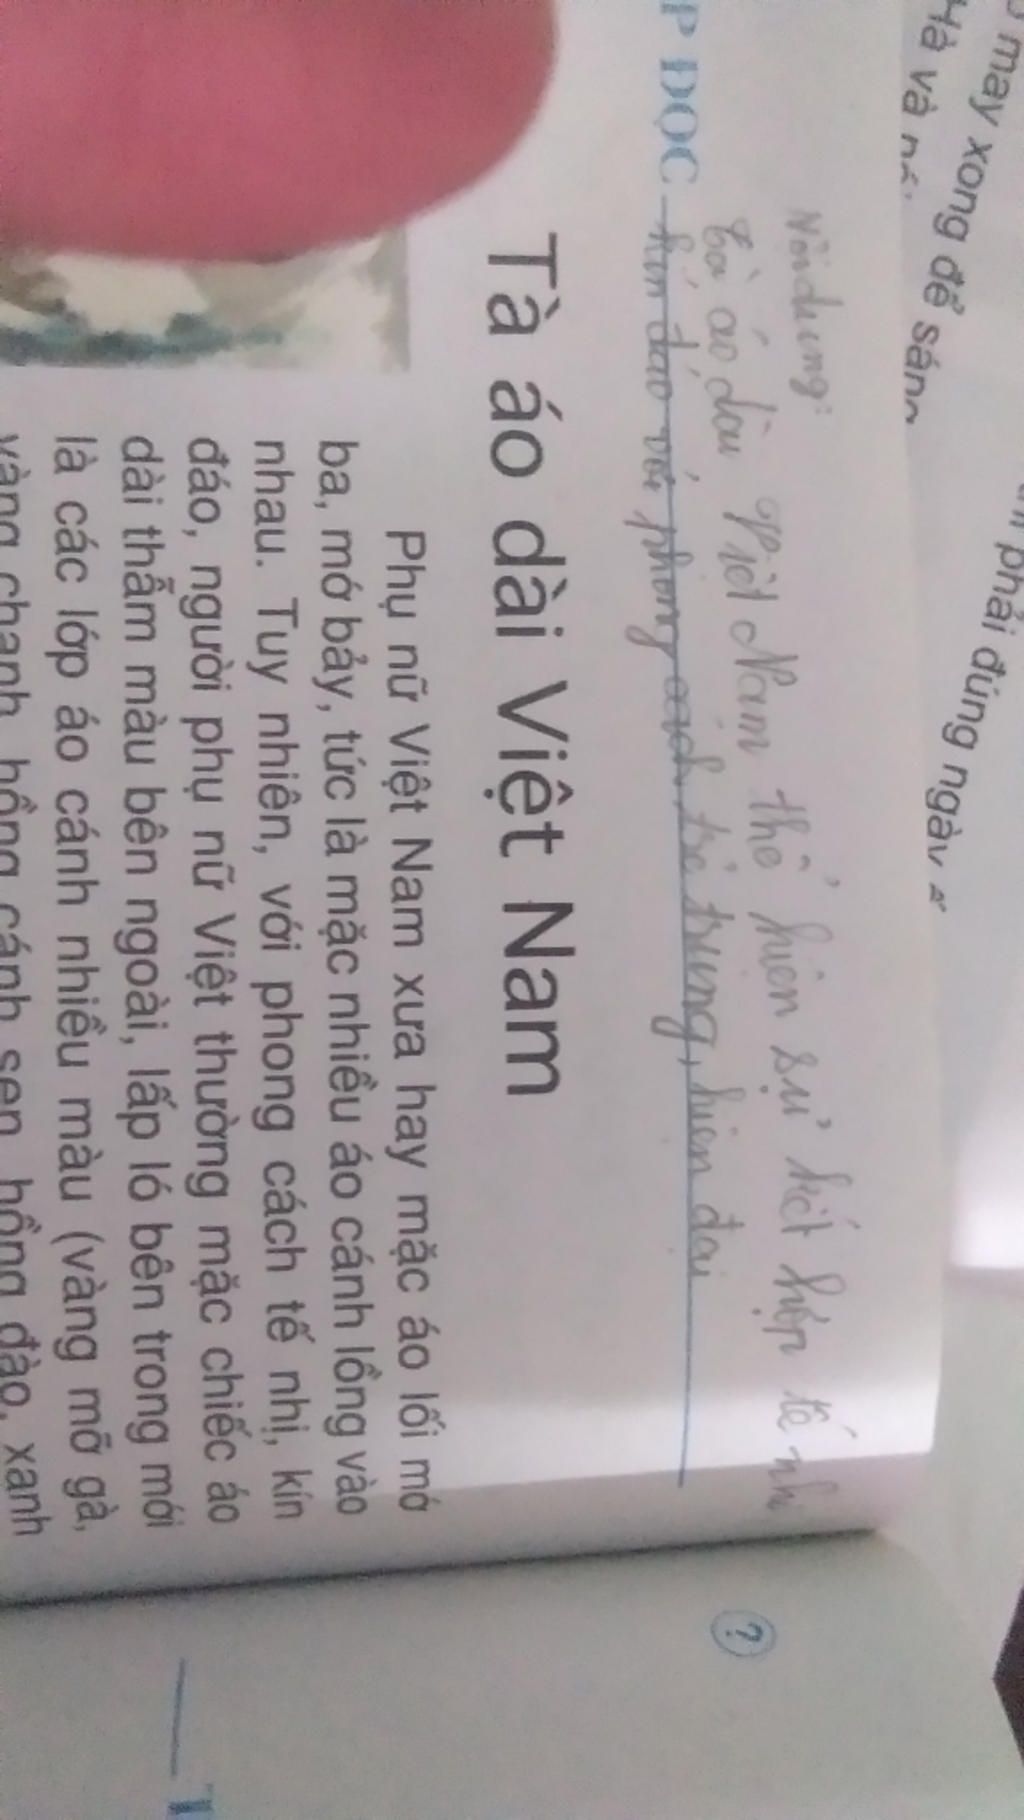 may xong để
Hà và
phải đúng ngày
Nội dung:
Tà áo dài Việt Nam thể hiện sự kết hợp tế nhị
P ĐỌC kín đáo với phong cách trẻ trung, hiện đại
Tà áo dài Việt Nam
Phụ nữ Việt Nam xưa hay mặc áo lối mớ
ba, mớ bảy, tức là mặc nhiều áo cánh lồng vào
nhau. Tuy nhiên, với phong cách tế nhị, kín
đáo, người phụ nữ Việt thường mặc chiếc áo
dài thẫm màu bên ngoài, lấp ló bên trong mới
là các lớp áo cánh nhiều màu (vàng mỡ gà,
vàng chanh, hồng cánh sen, hồng đào, xanh
?
T